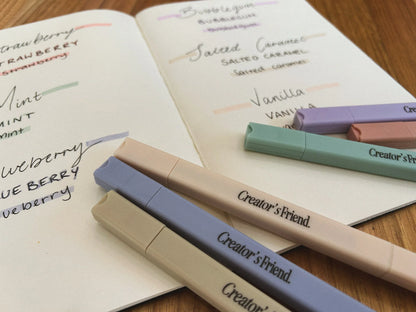 Strawberry
STRAWBERRY
Strawberry
Mint
MINT
mint
Blueberry
BLUEBERRY
blueberry
Bubblegum
BUBBLEGUM
Bubblegum
Salted Caramel
SALTED CARAMEL
Salted caramel
Vanilla
VANILLA
Creator's Friend.
Creator's Friend.
Creator's Friend.
Creator's Friend.